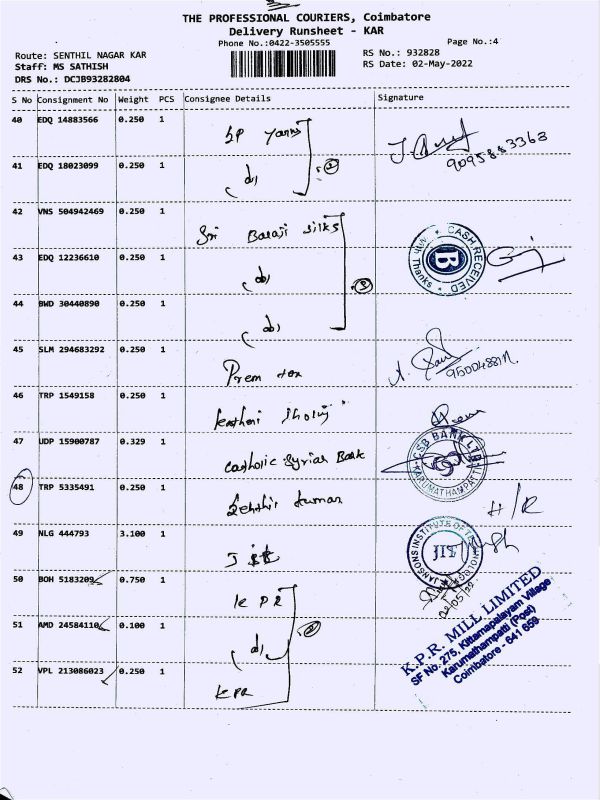 THE PROFESSIONAL COURIERS, Coimbatore
Delivery Runsheet - KAR
Phone No.:0422-3505555
Page No.:4
Route: SENTHIL NAGAR KAR
RS No.: 932828
Staff: MS SATHISH
RS Date: 02-May-2022
DRS No.: DCJB93282804
S No Consignment No Weight PCS Consignee Details Signature
40 EDQ 14883566 0.250 1 SP Yarns
9095883368
41 EDQ 18023099 0.250 1 (do) 2
42 VNS 504942469 0.250 1 Sri Balaji silks
CASH RECEIVED
B
Thanks
43 EDQ 12236610 0.250 1 (do) 3
44 BWD 30440890 0.250 1 (do)
45 SLM 294683292 0.250 1 Prem tex
46 TRP 1549158 0.250 1
47 UDP 15900787 0.329 1 catholic Syrian Bank
CSB BANK LTD
KARUMATHAMPATTI
48 TRP 5335491 0.250 1 Senthil kumar
H/R
49 NLG 444793 3.100 1
JANSONS INSTITUTE OF TECHNOLOGY
JIT
02/05/22
50 BOH 5183209 0.750 1 KPR
51 AMD 24584110 0.100 1 (do)
52 VPL 213086023 0.250 1 KPR
K.P.R. MILL LIMITED
SF No. 275, Kittampalayam Village
Karumathampatti (Post)
Coimbatore - 641 659